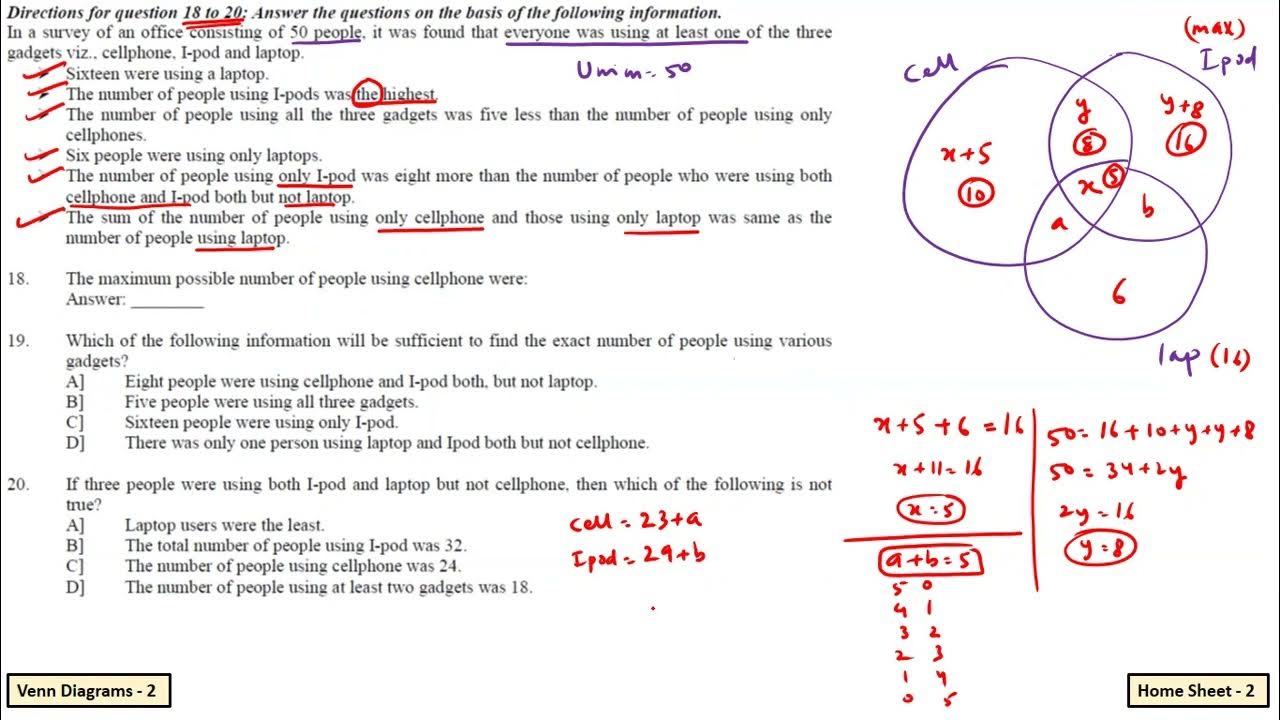 Directions for question 18 to 20: Answer the questions on the basis of the following information.
In a survey of an office consisting of 50 people, it was found that everyone was using at least one of the three
gadgets viz., cellphone, I-pod and laptop.
Sixteen were using a laptop.
The number of people using I-pods was the highest.
The number of people using all the three gadgets was five less than the number of people using only
cellphones.
Six people were using only laptops.
The number of people using only I-pod was eight more than the number of people who were using both
cellphone and I-pod both but not laptop.
The sum of the number of people using only cellphone and those using only laptop was same as the
number of people using laptop.
18. The maximum possible number of people using cellphone were:
Answer: ________
19. Which of the following information will be sufficient to find the exact number of people using various
gadgets?
A] Eight people were using cellphone and I-pod both, but not laptop.
B] Five people were using all three gadgets.
C] Sixteen people were using only I-pod.
D] There was only one person using laptop and Ipod both but not cellphone.
20. If three people were using both I-pod and laptop but not cellphone, then which of the following is not
true?
A] Laptop users were the least.
B] The total number of people using I-pod was 32.
C] The number of people using cellphone was 24.
D] The number of people using at least two gadgets was 18.
Cell = 23+a
Ipod = 29+b
(max)
Cell
Ipod
y
y+8
8
16
x+5
10
x 5
a
b
6
lap (16)
x+5+6 = 16
x+11=16
x=5
a+b=5
5 0
4 1
3 2
2 3
1 4
0 5
50=16+10+y+y+8
50 = 34+2y
2y=16
y=8
Venn Diagrams - 2
Home Sheet - 2